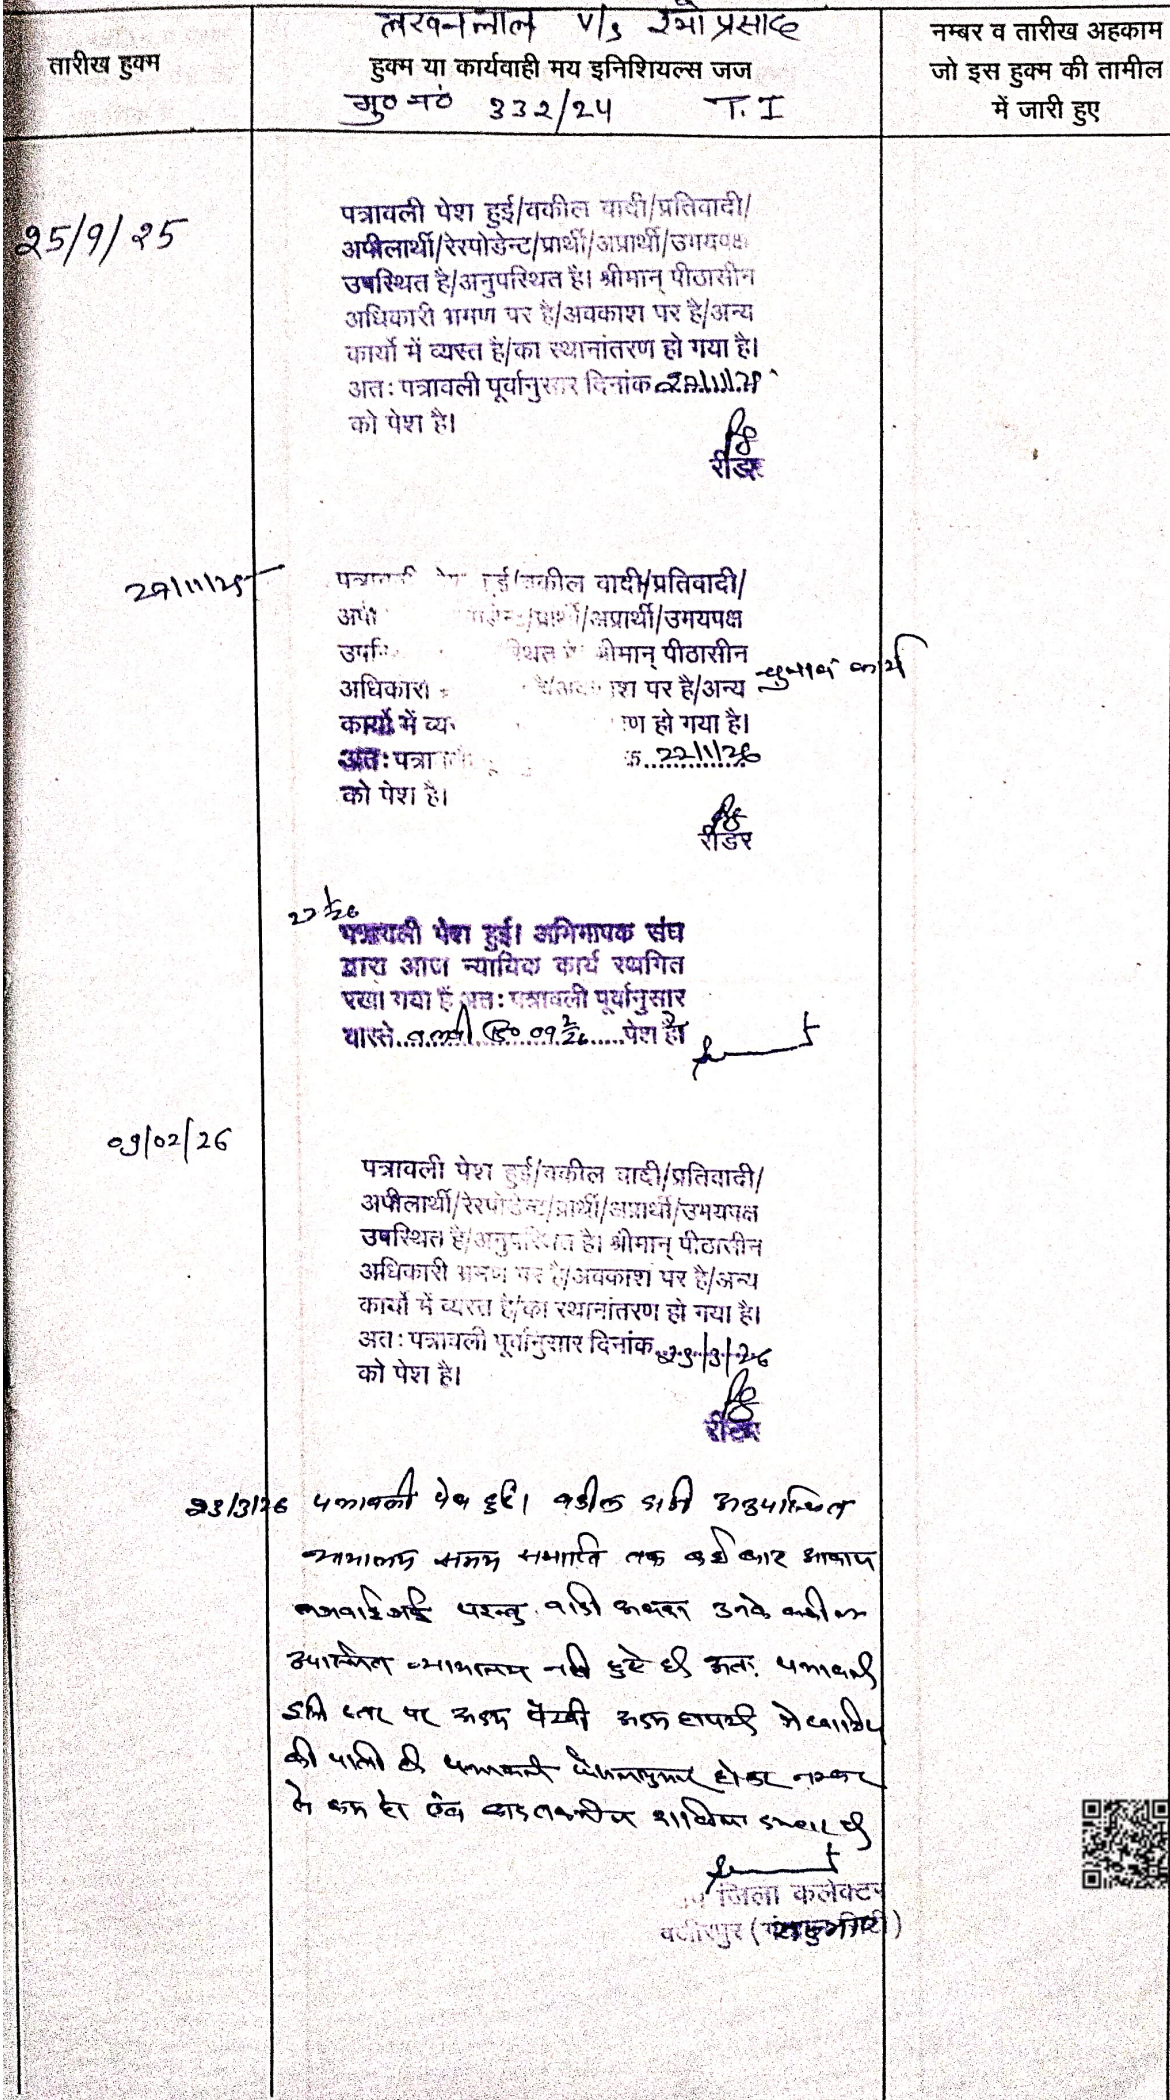 लखनलाल V/s
तारीख हुक्म
हुक्म या कार्यवाही मय इनिशियल्स जज
मु० नं० 332/24 T.I
नम्बर व तारीख अहकाम
जो इस हुक्म की तामील
में जारी हुए
25/9/25
पत्रावली पेश हुई/वकील वादी/प्रतिवादी/
अपीलार्थी/रेस्पोडेन्ट/प्रार्थी/अप्रार्थी/उभयपक्ष
उपस्थित है/अनुपस्थित है। श्रीमान् पीठासीन
अधिकारी भ्रमण पर है/अवकाश पर है/अन्य
कार्यो में व्यस्त है/का स्थानांतरण हो गया है।
अतः पत्रावली पूर्वानुसार दिनांक
को पेश है।
रीडर
वकील वादी/प्रतिवादी/
/अप्रार्थी/उभयपक्ष
श्रीमान् पीठासीन
अधिकारी पर है/अन्य चुनाव कार्य
कार्यो में हो गया है।
अतः 22/1/26
को पेश है।
रीडर
पत्रावली पेश हुई। अभिभाषक संघ
द्वारा आज न्यायिक कार्य स्थगित
रखा गया है अतः पत्रावली पूर्वानुसार
वास्ते 09 2/26 पेश है।
09/02/26
पत्रावली पेश हुई/वकील वादी/प्रतिवादी/
अपीलार्थी/रेस्पोडेन्ट/प्रार्थी/अप्रार्थी/उभयपक्ष
उपस्थित है/अनुपस्थित है। श्रीमान् पीठासीन
अधिकारी भ्रमण पर है/अवकाश पर है/अन्य
कार्यो में व्यस्त है/का स्थानांतरण हो गया है।
अतः पत्रावली पूर्वानुसार दिनांक 23/3/26
को पेश है।
रीडर
23/3/26 पत्रावली पेश हुई। वकील वादी अनुपस्थित
न्यायालय समय समाप्ति तक कई बार आवाज
लगवाई गई परन्तु वादी अथवा उनके वकील
उपस्थित न्यायालय नही हुऐ है अतः पत्रावली
इसी स्तर पर अदम पैरवी अदम हाजरी मे खारिज
की जाती है पत्रावली होकर नम्बर
से कम हो दाखिल दफ्तर हो
जिला कलेक्टर
वजीरपुर